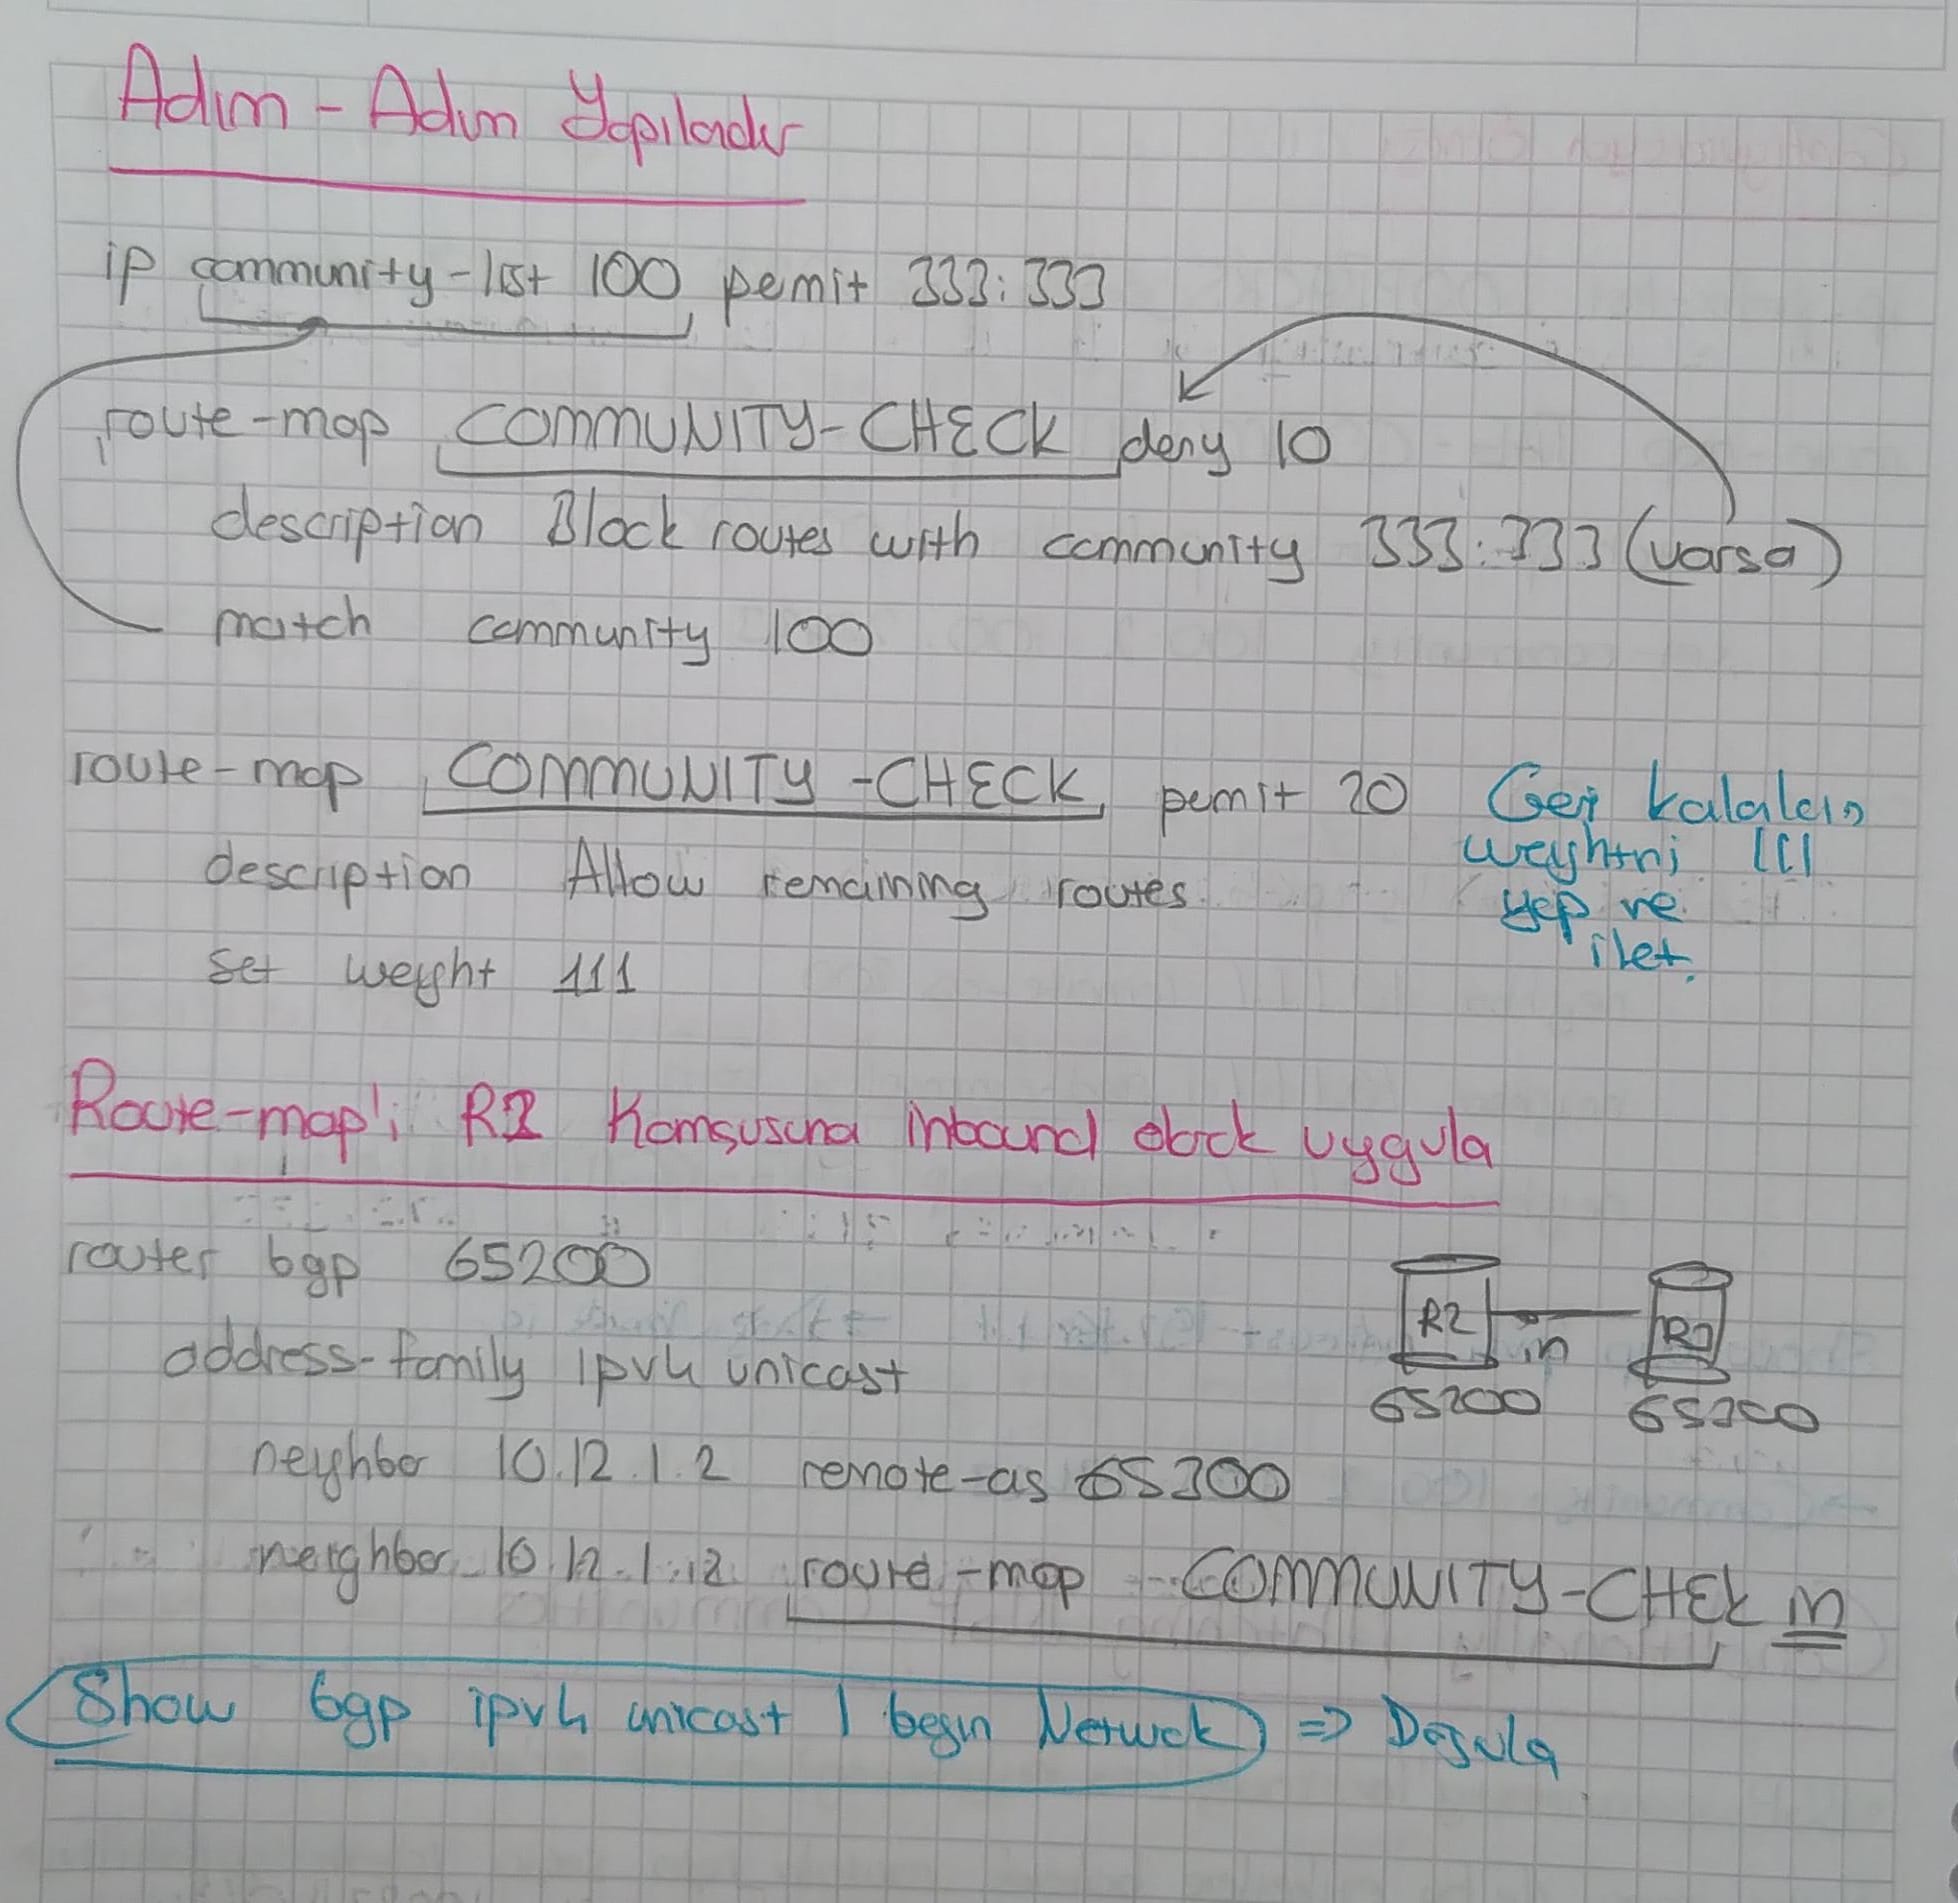 Adım - Adım Yapılandır
ip community-list 100 permit 333:333
route-map COMMUNITY-CHECK deny 10
description Block routes with community 333:333 (varsa)
match community 100
route-map COMMUNITY-CHECK permit 20
description Allow remaining routes
set weight 111
Geri kalaların
weightni 111
yap ve
ilet.
Route-map'i R2 Komşusuna inbound olarak uygula
router bgp 65200
address-family ipv4 unicast
neighbor 10.12.1.2 remote-as 65300
neighbor 10.12.1.2 route-map COMMUNITY-CHEK in
R2 in R3
65200 65300
Show bgp ipv4 unicast | begin Network => Doğrula